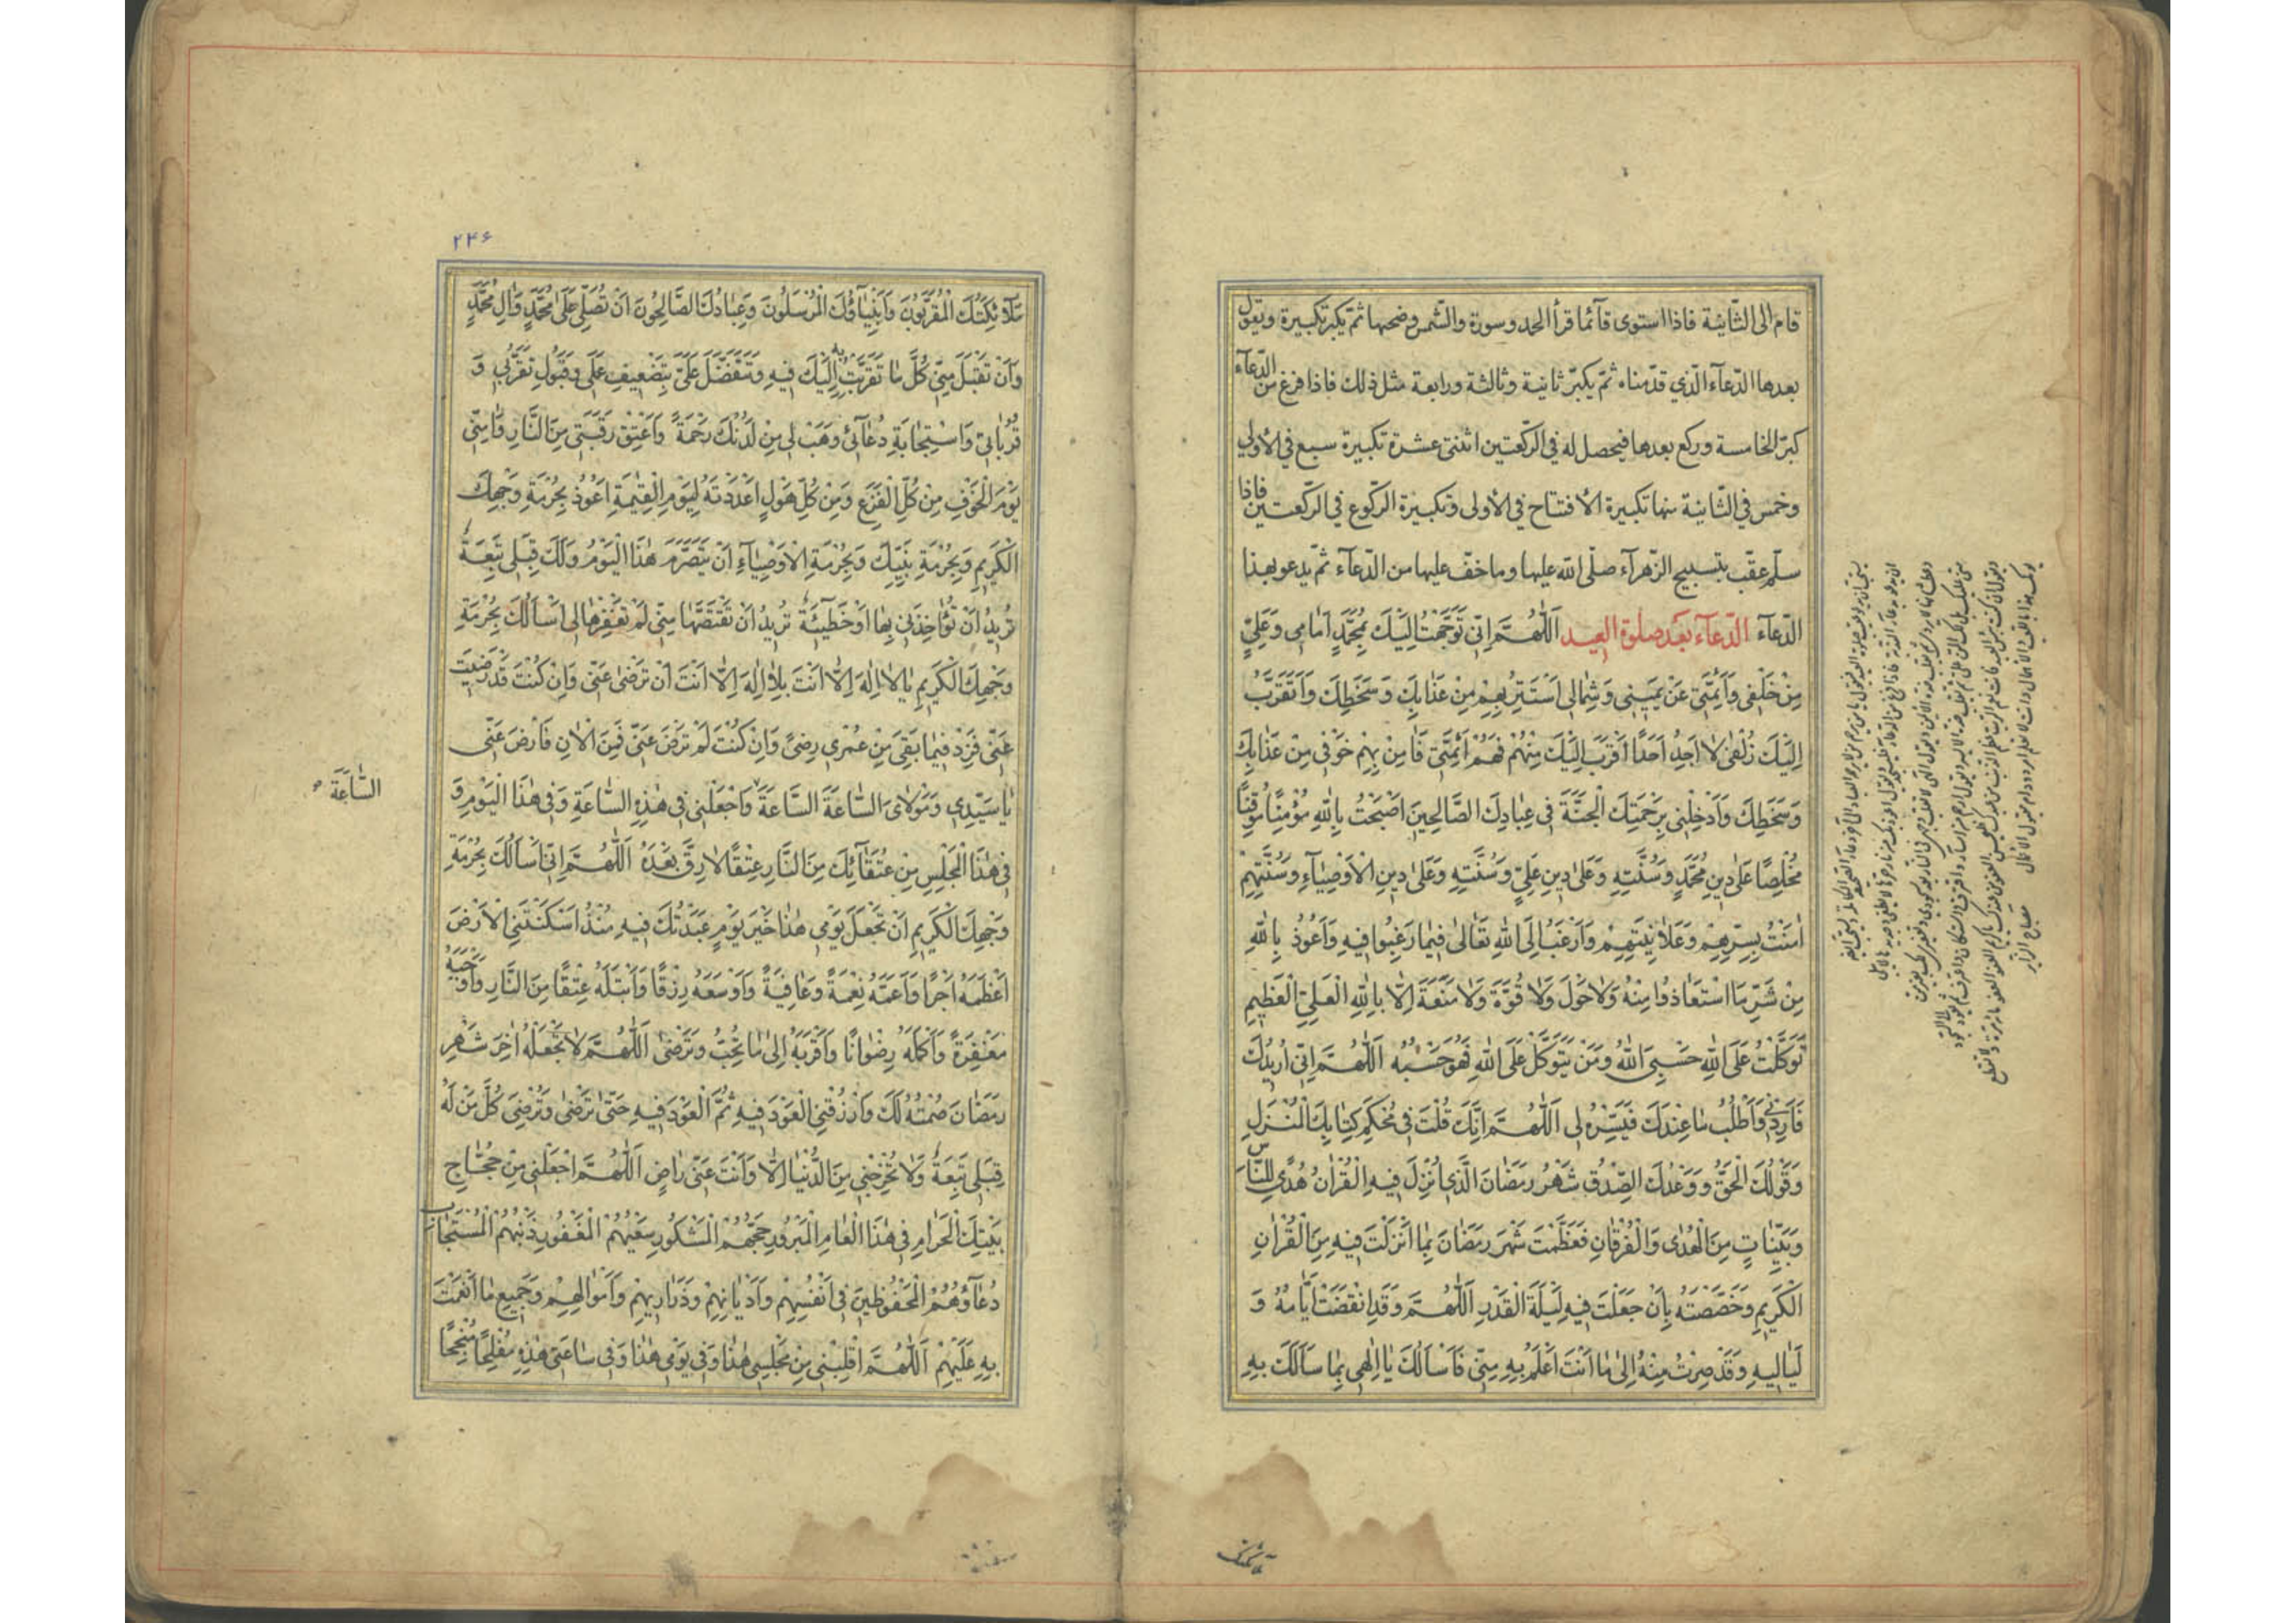 قام الى الثّانية فاذا استوى قآئما قرأ الحمد وسورة والشّمس وضحيها ثمّ يكبّر تكبيرة ويقول
بعدها الدّعآء الّذي قدّمناه ثمّ يكبّر ثانية وثالثة ورابعة مثل ذلك فاذا فرغ من الدّعآء
كبّر الخامسة وركع بعدها فيحصل له في الرّكعتين اثنتى عشرة تكبيرة سبع في الأولى
وخمس في الثّانية منها تكبيرة الافتتاح في الأولى وتكبيرة الرّكوع في الرّكعتين فاذا
سلّم عقّب بتسبيح الزّهرآء صلّى الله عليها وما خفّ عليها من الدّعآء ثمّ يدعو بهذا
الدّعآء الدّعآء بعد صلوة العيد اَللّٰهُمَّ اِنّى تَوَجَّهْتُ اِلَيْكَ بِمُحَمَّدٍ اَمٰامِى وَعَلِىٍّ
مِنْ خَلْفِى وَاَئِمَّتِى عَنْ يَمِينِى وَشِمٰالِى اَسْتَتِرُ بِهِمْ مِنْ عَذٰابِكَ وَسَخَطِكَ وَاَتَقَرَّبُ
اِلَيْكَ زُلْفٰى لٰا اَجِدُ اَحَدًا اَقْرَبَ اِلَيْكَ مِنْهُمْ فَهُمْ اَئِمَّتِى فَاٰمِنْ بِهِمْ خَوْفِى مِنْ عَذٰابِكَ
وَسَخَطِكَ وَاَدْخِلْنِى بِرَحْمَتِكَ الْجَنَّةَ فِى عِبٰادِكَ الصّٰالِحِينَ اَصْبَحْتُ بِاللّٰهِ مُؤْمِنًا مُوقِنًا
مُخْلِصًا عَلٰى دِينِ مُحَمَّدٍ وَسُنَّتِهِ وَعَلٰى دِينِ عَلِىٍّ وَسُنَّتِهِ وَعَلٰى دِينِ الْاَوْصِيٰآءِ وَسُنَّتِهِمْ
اٰمَنْتُ بِسِرِّهِمْ وَعَلٰانِيَتِهِمْ وَاَرْغَبُ اِلَى اللّٰهِ تَعٰالٰى فِيمٰا رَغِبُوا فِيهِ وَاَعُوذُ بِاللّٰهِ
مِنْ شَرِّ مَا اسْتَعٰاذُوا مِنْهُ وَلٰا حَوْلَ وَلٰا قُوَّةَ وَلٰا مَنَعَةَ اِلّٰا بِاللّٰهِ الْعَلِىِّ الْعَظِيمِ
تَوَكَّلْتُ عَلَى اللّٰهِ حَسْبِىَ اللّٰهُ وَمَنْ يَتَوَكَّلْ عَلَى اللّٰهِ فَهُوَ حَسْبُهُ اَللّٰهُمَّ اِنِّى اُرِيدُكَ
فَاَرِدْنِى وَاَطْلُبُ مٰا عِنْدَكَ فَيَسِّرْهُ لِى اَللّٰهُمَّ اِنَّكَ قُلْتَ فِى مُحْكَمِ كِتٰابِكَ الْمُنْزَلِ
وَقَوْلُكَ الْحَقُّ وَوَعْدُكَ الصِّدْقُ شَهْرُ رَمَضٰانَ الَّذِى اُنْزِلَ فِيهِ الْقُرْاٰنُ هُدًى لِلنّٰاسِ
وَبَيِّنٰاتٍ مِنَ الْهُدٰى وَالْفُرْقٰانِ فَعَظَّمْتَ شَهْرَ رَمَضٰانَ بِمٰا اَنْزَلْتَ فِيهِ مِنَ الْقُرْاٰنِ
الْكَرِيمِ وَخَصَّصْتَهُ بِاَنْ جَعَلْتَ فِيهِ لَيْلَةَ الْقَدْرِ اَللّٰهُمَّ وَقَدِ انْقَضَتْ اَيّٰامُهُ وَ
لَيٰالِيهِ وَقَدْ صِرْتُ مِنْهُ اِلٰى مٰا اَنْتَ اَعْلَمُ بِهِ مِنِّى فَاَسْاَلُكَ يٰا اِلٰهِى بِمٰا سَاَلَكَ بِهِ
۲۴۶
مَلٰآئِكَتُكَ الْمُقَرَّبُونَ وَاَنْبِيٰآؤُكَ الْمُرْسَلُونَ وَعِبٰادُكَ الصّٰالِحُونَ اَنْ تُصَلِّىَ عَلٰى مُحَمَّدٍ وَاٰلِ مُحَمَّدٍ
وَاَنْ تَقْبَلَ مِنِّى كُلَّ مٰا تَقَرَّبْتُ بِهِ اِلَيْكَ فِيهِ وَتَتَفَضَّلَ عَلَىَّ بِتَضْعِيفِ عَمَلِى وَقَبُولِ تَقَرُّبِى وَ
قُرُبٰاتِى وَاسْتِجٰابَةِ دُعٰآئِى وَهَبْ لِى مِنْ لَدُنْكَ رَحْمَةً وَاَعْتِقْ رَقَبَتِى مِنَ النّٰارِ وَاٰمِنِّى
يَوْمَ الْخَوْفِ مِنْ كُلِّ الْفَزَعِ وَمِنْ كُلِّ هَوْلٍ اَعْدَدْتَهُ لِيَوْمِ الْقِيٰمَةِ اَعُوذُ بِحُرْمَةِ وَجْهِكَ
الْكَرِيمِ وَبِحُرْمَةِ نَبِيِّكَ وَبِحُرْمَةِ الْاَوْصِيٰآءِ اَنْ يَتَصَرَّمَ هٰذَا الْيَوْمُ وَلَكَ قِبَلِى تَبِعَةٌ
تُرِيدُ اَنْ تُؤٰاخِذَنِى بِهٰا اَوْ خَطِيٓئَةٌ تُرِيدُ اَنْ تَقْتَصَّهٰا مِنِّى لَمْ تَغْفِرْهٰا لِى اَسْاَلُكَ بِحُرْمَةِ
وَجْهِكَ الْكَرِيمِ يٰا لٰا اِلٰهَ اِلّٰا اَنْتَ بِلٰا اِلٰهَ اِلّٰا اَنْتَ اَنْ تَرْضٰى عَنِّى وَاِنْ كُنْتَ قَدْ رَضِيتَ
عَنِّى فَزِدْ فِيمٰا بَقِىَ مِنْ عُمْرِى رِضًى وَاِنْ كُنْتَ لَمْ تَرْضَ عَنِّى فَمِنَ الْاٰنِ فَارْضَ عَنِّى
يٰا سَيِّدِى وَمَوْلٰاىَ السّٰاعَةَ السّٰاعَةَ وَاجْعَلْنِى فِى هٰذِهِ السّٰاعَةِ وَفِى هٰذَا الْيَوْمِ وَ
السّٰاعَةَ
فِى هٰذَا الْمَجْلِسِ مِنْ عُتَقٰآئِكَ مِنَ النّٰارِ عِتْقًا لٰا رِقَّ بَعْدَهُ اَللّٰهُمَّ اِنِّى اَسْاَلُكَ بِحُرْمَةِ
وَجْهِكَ الْكَرِيمِ اَنْ تَجْعَلَ يَوْمِى هٰذٰا خَيْرَ يَوْمٍ عَبَدْتُكَ فِيهِ مُنْذُ اَسْكَنْتَنِى الْاَرْضَ
اَعْظَمَهُ اَجْرًا وَاَعَمَّهُ نِعْمَةً وَعٰافِيَةً وَاَوْسَعَهُ رِزْقًا وَاَبْتَلَهُ عِتْقًا مِنَ النّٰارِ وَاَوْجَبَهُ
مَغْفِرَةً وَاَكْمَلَهُ رِضْوٰانًا وَاَقْرَبَهُ اِلٰى مٰا تُحِبُّ وَتَرْضٰى اَللّٰهُمَّ لٰا تَجْعَلْهُ اٰخِرَ شَهْرِ
رَمَضٰانَ صُمْتُهُ لَكَ وَارْزُقْنِى الْعَوْدَ فِيهِ ثُمَّ الْعَوْدَ فِيهِ حَتّٰى تَرْضٰى وَتُرْضِىَ كُلَّ مَنْ لَهُ
قِبَلِى تَبِعَةٌ وَلٰا تُخْرِجْنِى مِنَ الدُّنْيٰا اِلّٰا وَاَنْتَ عَنِّى رٰاضٍ اَللّٰهُمَّ اجْعَلْنِى مِنْ حُجّٰاجِ
بَيْتِكَ الْحَرٰامِ فِى هٰذَا الْعٰامِ الْمَبْرُورِ حَجُّهُمُ الْمَشْكُورِ سَعْيُهُمُ الْمَغْفُورِ ذَنْبُهُمُ الْمُسْتَجٰابِ
دُعٰآؤُهُمُ الْمَحْفُوظِينَ فِى اَنْفُسِهِمْ وَاَدْيٰانِهِمْ وَذَرٰارِيهِمْ وَاَمْوٰالِهِمْ وَجَمِيعِ مٰا اَنْعَمْتَ
بِهِ عَلَيْهِمْ اَللّٰهُمَّ اقْلِبْنِى مِنْ مَجْلِسِى هٰذٰا وَفِى يَوْمِى هٰذٰا وَفِى سٰاعَتِى هٰذِهِ مُفْلِحًا مُنْجِحًا